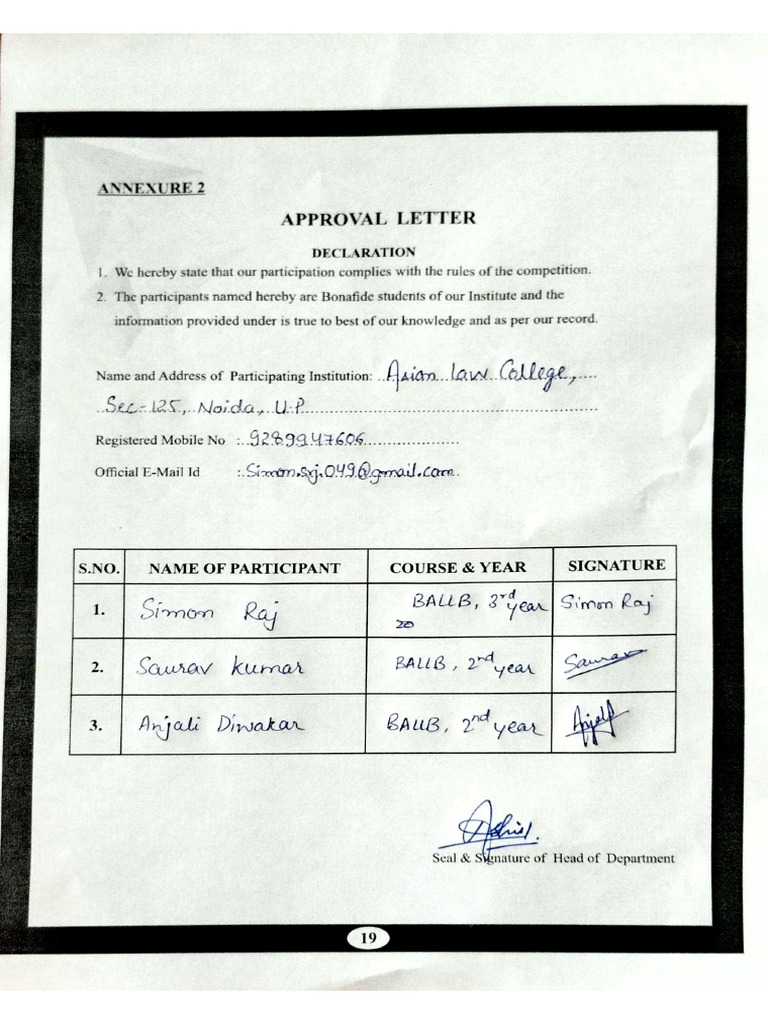 ANNEXURE 2
APPROVAL LETTER
DECLARATION
1. We hereby state that our participation complies with the rules of the competition.
2. The participants named hereby are Bonafide students of our Institute and the
information provided under is true to best of our knowledge and as per our record.
Name and Address of Participating Institution: Asian Law College,
Sec-125, Noida, U.P.
Registered Mobile No : 9289947606
Official E-Mail Id : Simon.srj.049@gmail.com
S.NO. NAME OF PARTICIPANT COURSE & YEAR SIGNATURE
1. Simon Raj BALLB, 3rd year Simon Raj
2. Saurav Kumar BALLB, 2nd year Saurav
3. Anjali Diwakar BALLB, 2nd year Anjali
Seal & Signature of Head of Department
19